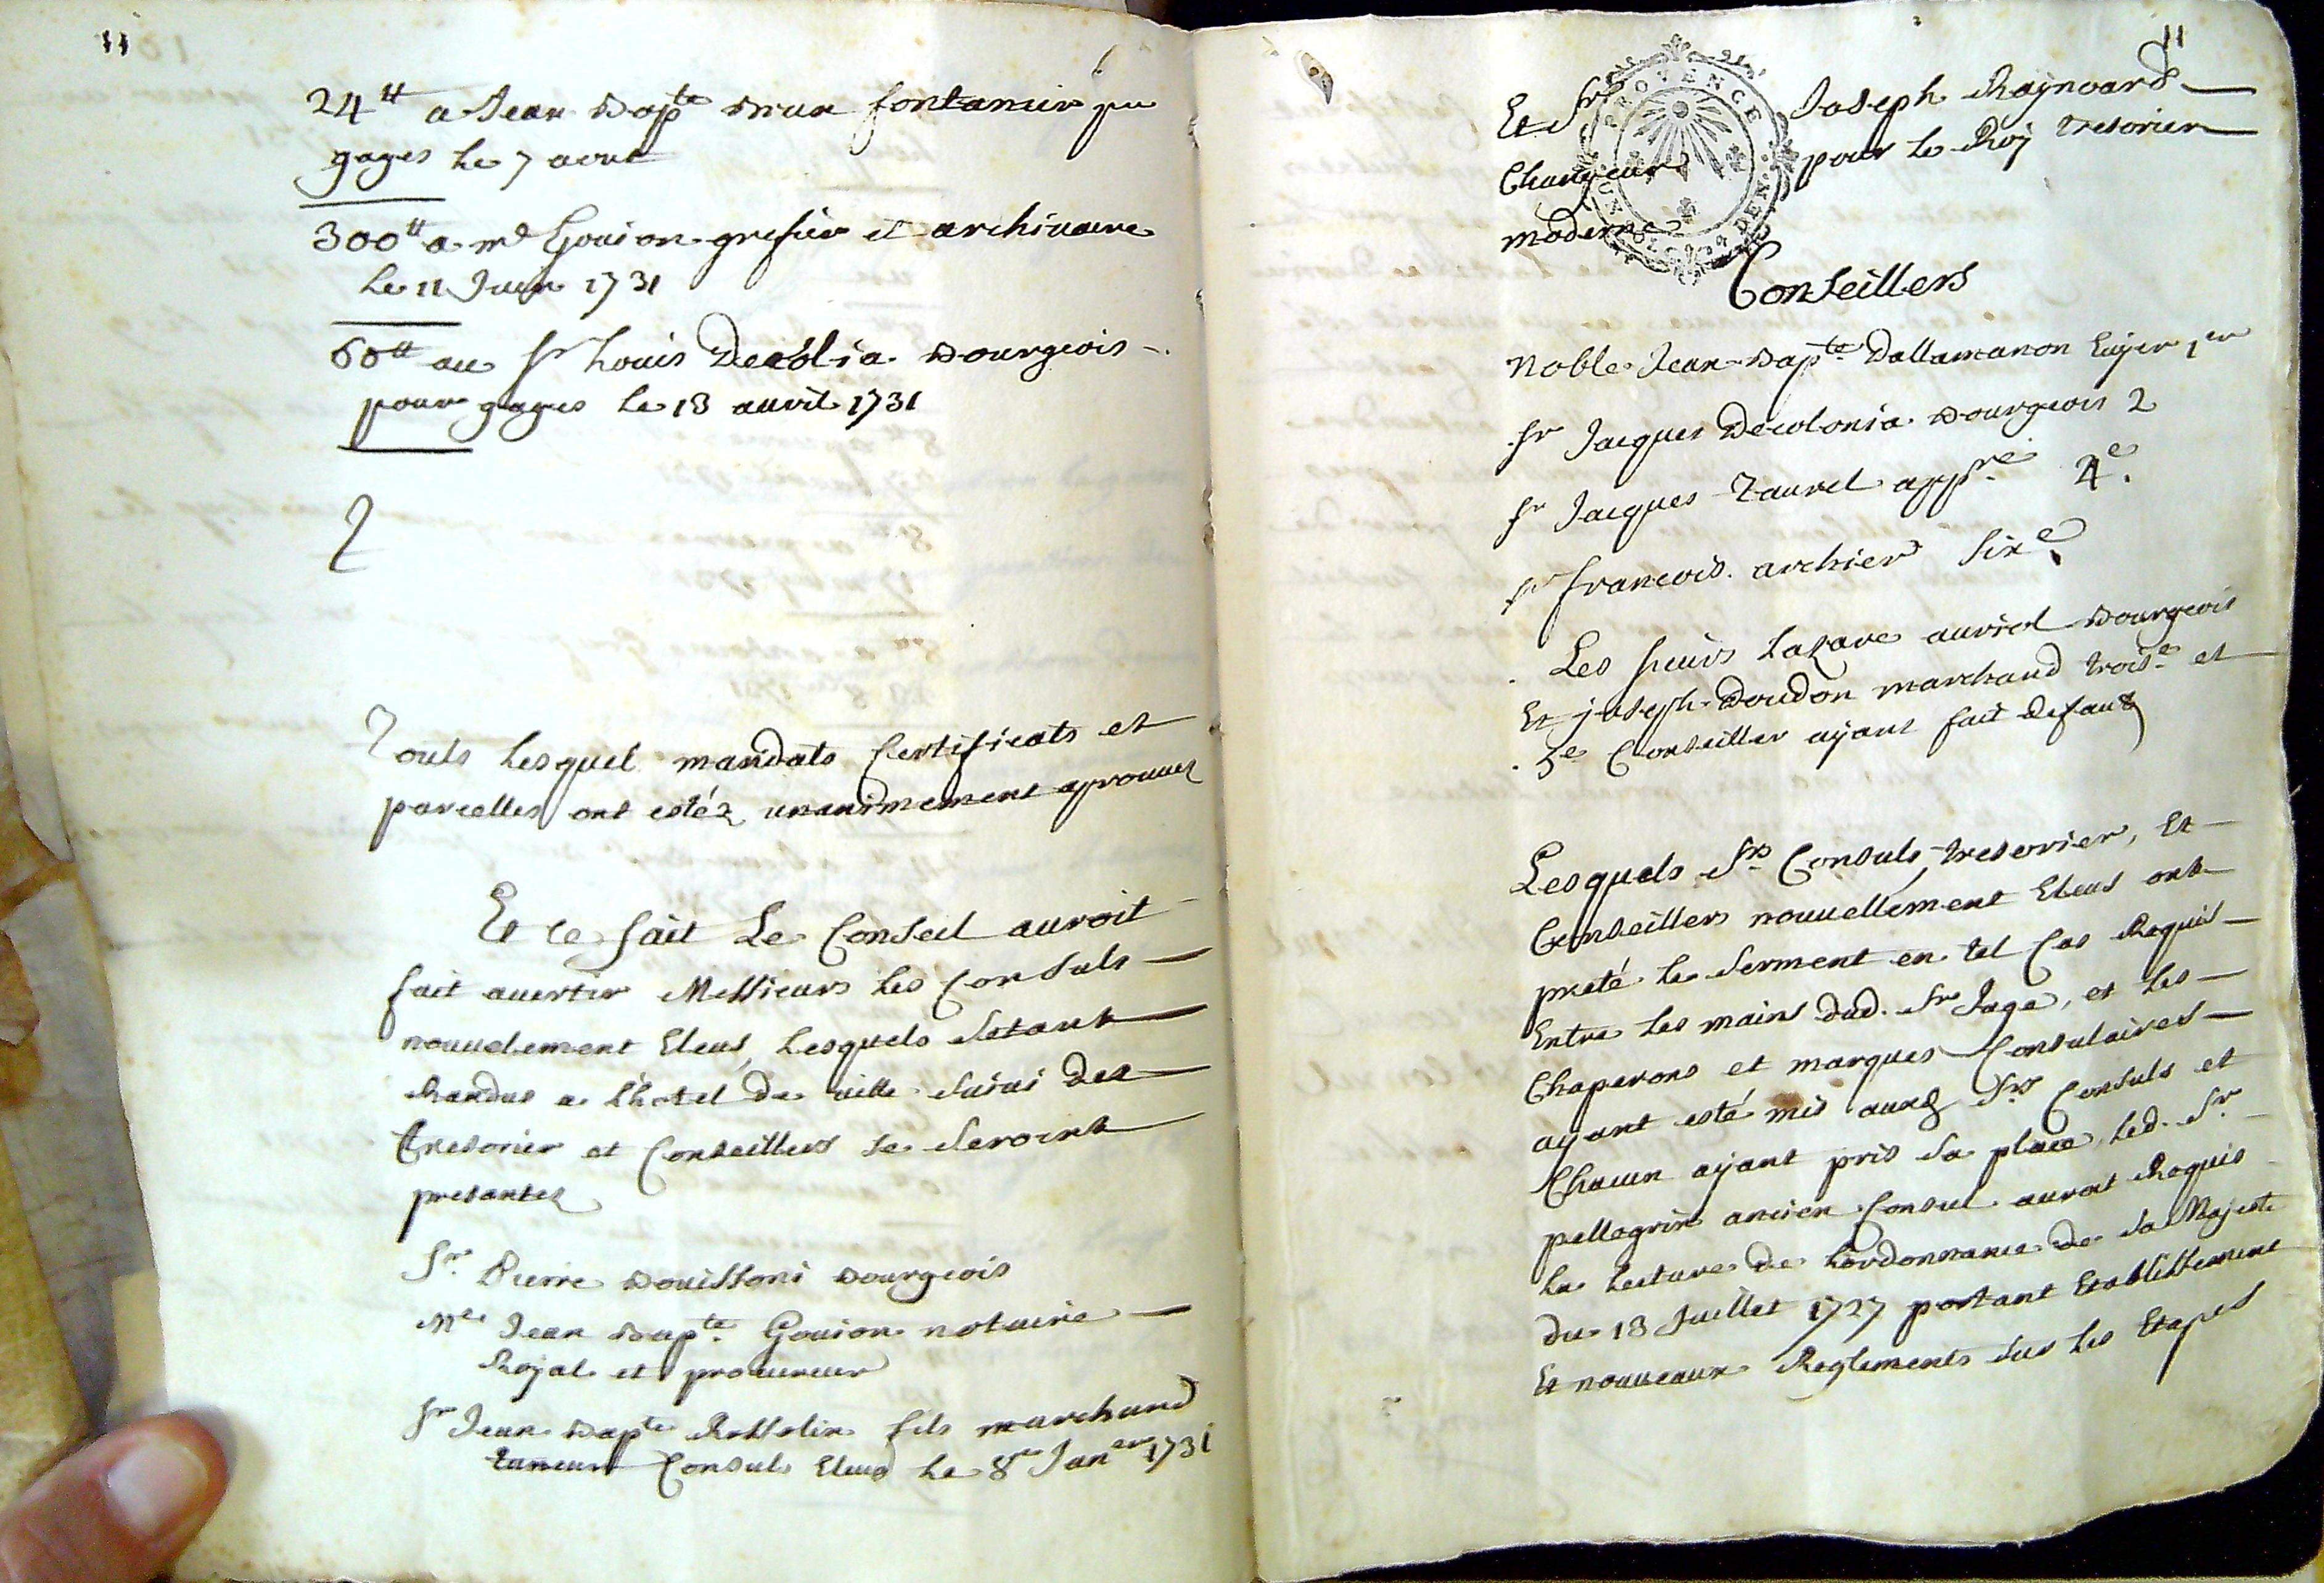 11
24 tt a Jean Bapte Brun fontanier pr
gages le 7 aout
300 tt a me Gouion grefier et archiuaire
le 11 Juin 1731
60 tt au sr Louis Decolonia Bourgeois
pour gages le 13 auril 1731
Touts lesquel mandats Certificats et
parcelles ont estéz unanimement aprouuez
Et ce fait Le Conseil auroit
fait auertir Messieurs les Consuls
nouuelement Eleus, lesquels setant
Randus a l'hotel de uille suiui des
tresorier et Conseillers se seroint
presantez
Sr. Pierre Bouissoni Bourgeois
Me Jean Bapte Gouion notaire
Royal et procureur
Sr Jean Bapte Rosselin fils marchand
tanneur Consuls Eleus le 8e Janer 1731
11
Et Sr Joseph Raynoard
Chargeur pour le Roy tresorier
moderne
PROVENCE
Conseillers
Noble Jean Bapte Dallamanon Euyer 1er
Sr Jacques Decolonia Bourgeois 2
Sr Jacques Taurel appre 4e.
Sr francois archier Sixe.
Les sieurs Lazare auriol Bourgeois
Et joseph Boudon marchand troise et
5e Conseiller ayant fait defaut
Lesquels Srs Consuls, tresorier, Et
Conseillers nouuellement Eleus ont
preté le serment en tel Cas Requis
Entre les mains dud. Sr Juge, et les
Chaperons et marques Consulaires
ayant esté mis auxd Srs Consuls et
Chacun ayant pris sa place, led. Sr
pellegrin ancien Consul auroit Requis
la lecture de lordonnance de sa Majesté
du 13 Juillet 1727 portant Etablissement
Et nouueaux Reglements sur les Etapes